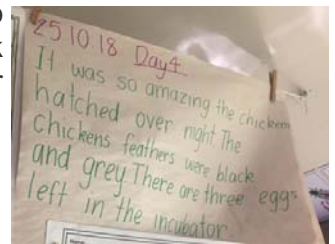 25.10.18 Day4
It was so amazing the chickens
hatched over night The
chickens feathers were black
and grey There are three eggs
left in the incubator